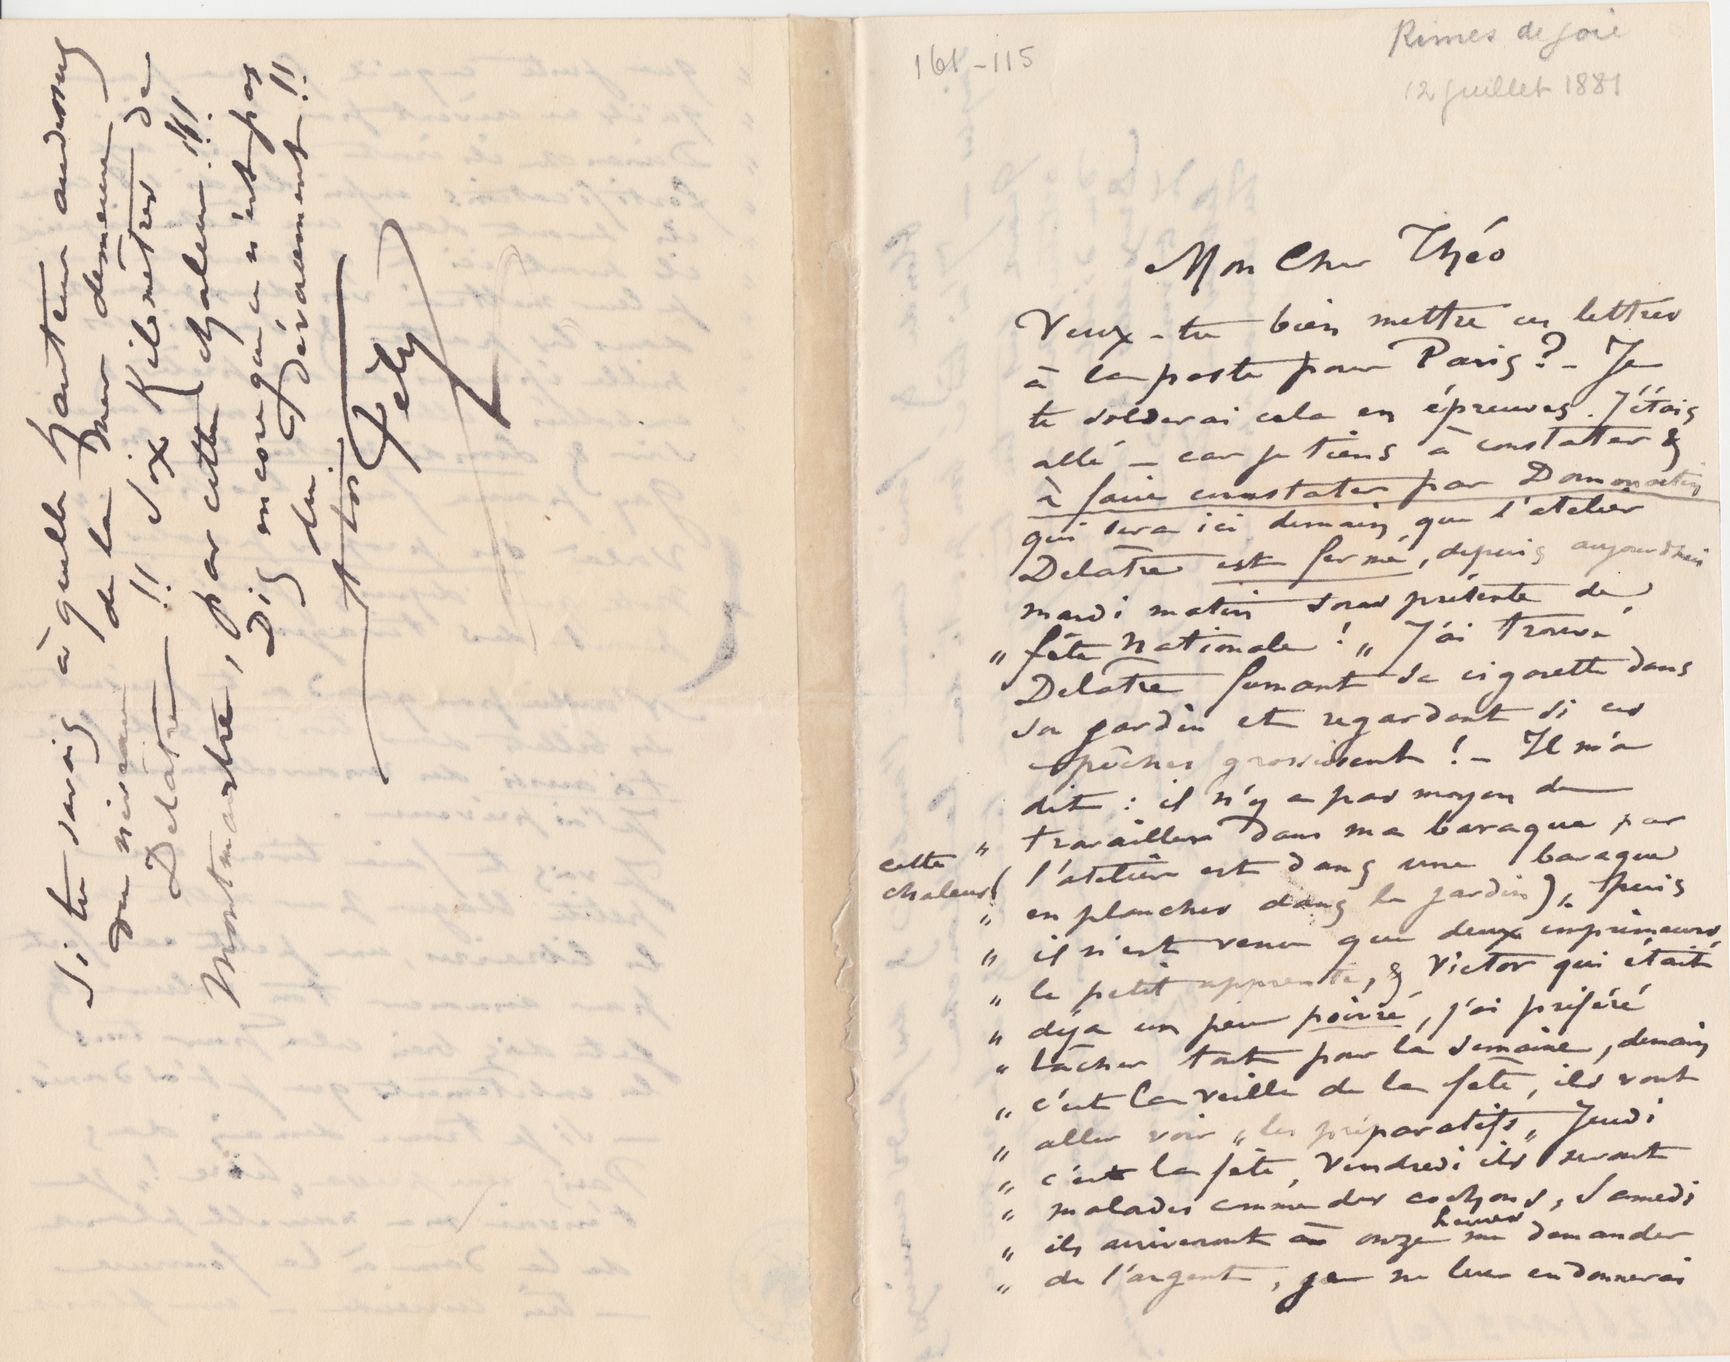 161-115
Rimes de Joie
12 Juillet 1881
Mon Cher Théo
Veux-tu bien mettre ces lettres
à la poste pour Paris? - Je
te solderai cela en épreuves. J'étais
allé - car je tiens à constater &
à faire constater par Dommartin
qui sera ici demain, que l'atelier
Delâtre est fermé, depuis aujourd'hui
mardi matin sous prétexte de
„ fête Nationale! „ J'ai trouvé
Delâtre fumant sa cigarette dans
son jardin et regardant si ses
pêches grossissent! - Il m'a
dit : il n'y a pas moyen de
„ travailler dans ma baraque par
cette
chaleur (l'atelier est dans une baraque
„ en planches dans le jardin) „ puis
„ il n'est venu que deux imprimeurs,
„ le petit apprenti, & Victor qui était
„ déjà un peu poivré, j'ai préféré
„ lâcher tout pour la semaine, demain
„ c'est la veille de la fête, ils vont
„ aller voir „ les préparatifs „ Jeudi
„ c'est la fête, Vendredi ils seront
„ malades comme des cochons, Samedi
„ ils arriveront à onze heures me demander
„ de l'argent, je ne leur en donnerai
Si tu savais à quelle hauteur au dessus
du niveau de la mer demeure
Delâtre !! Six Kilomètres de
Montmartre, par cette chaleur!!!
Dis encore que ce n'est pas
du dévouement!!
A toi
Fély